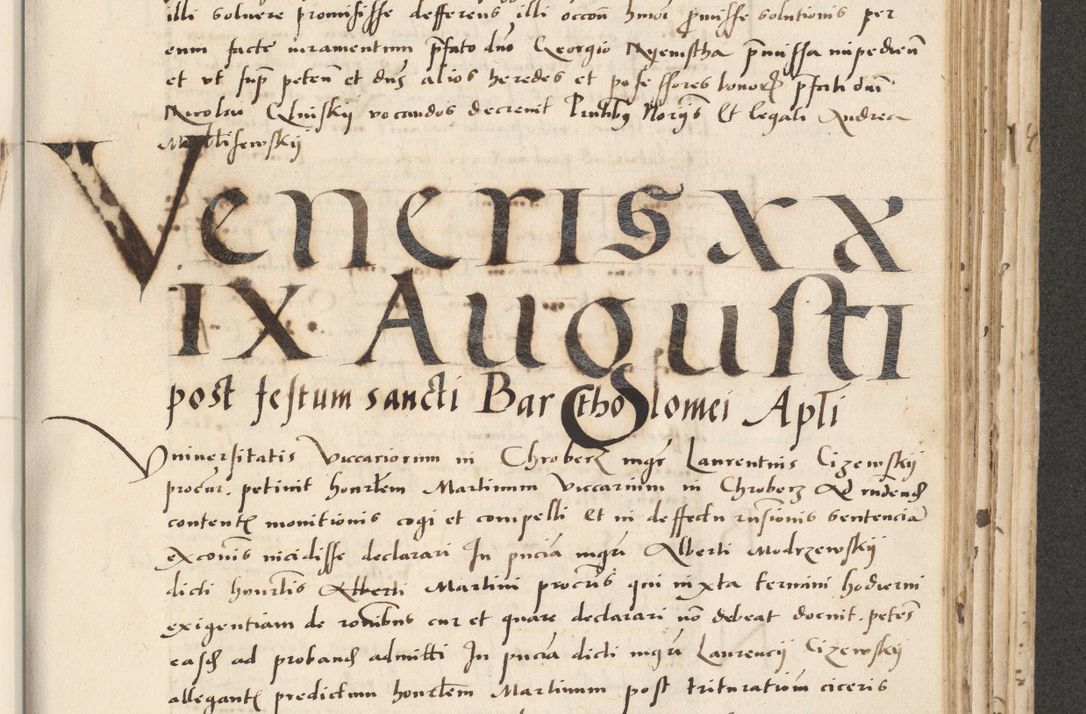 illi soluere promisisse defferens illi occon hmoi pmisse solutionis per
eum facte iuramentum pfato dno Georgio Myemstha pmissa impediend
et vt supr petend et dns alios heredes et possessores bonorum pfati dni
Nicolai vocandos decreuit Pntibus Noriis Et legali Andrea
Venerisxx
ix Augusti
post festum sancti Bartholomei Apli
Vniuersitatis viccariorum in Chroberz mgr Laurentius Cizewskij
procur. petiuit honrlem Martinum viccarium in Chroberz Ad
content monitionis cogi et compelli Et in deffectu rnsionis sentencia
exconis incidisse declarari In pncia mgri Alberti Modrzewskij
dicti honrlis Alberti Martini procris qui iuxta termini hodierni
exigentiam de ronibus cur et quare declarari no debeat docuit. petens
easdem ad proband admitti In pncia dicti mgri Laurencij Cizewskij
allegant predictum honrlem Martinum post trituratium ciceris